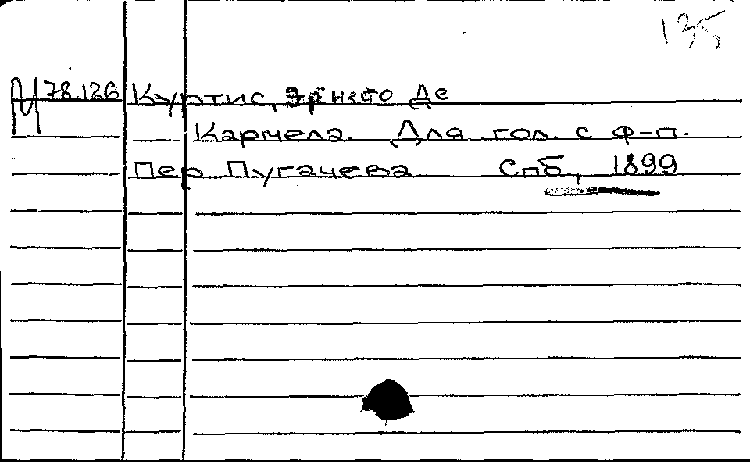 135
М 78.126 Куртис, Эрнесто Де
Кармела. Для гол. с ф-п.
Пер Пугачева Спб, 1899